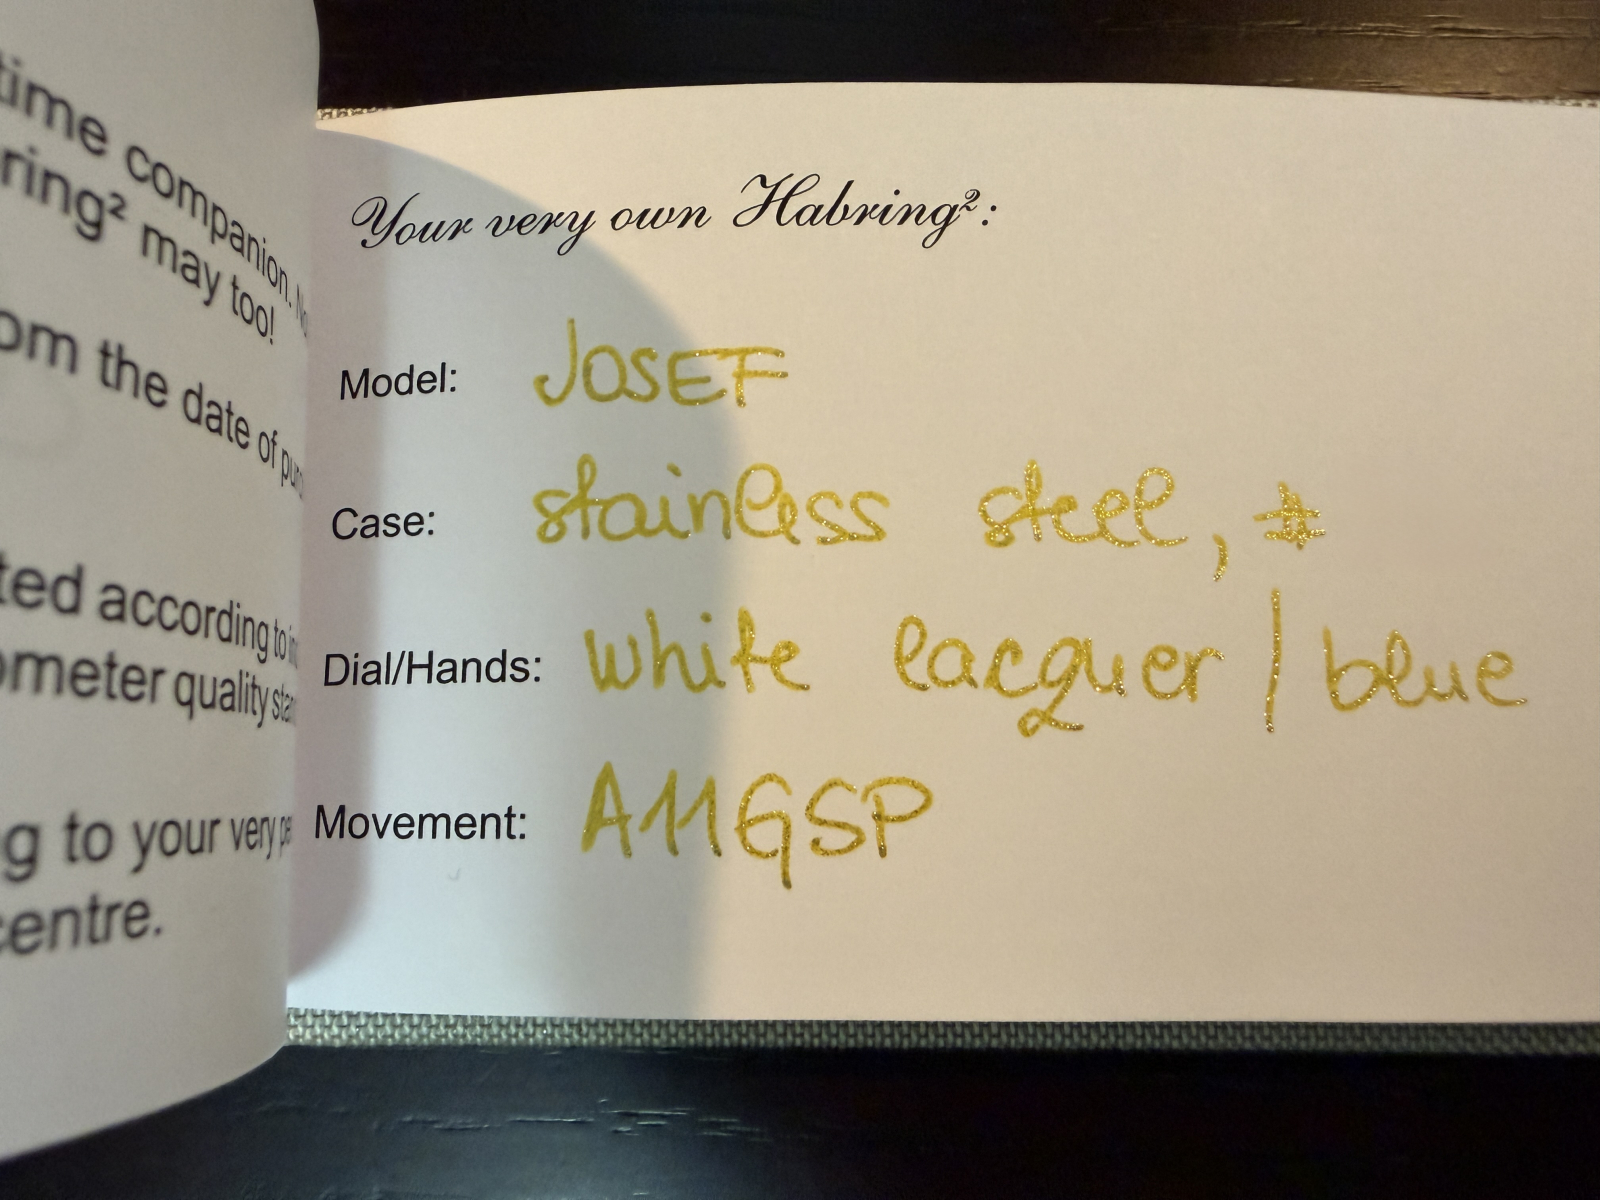 time companion.
ring² may too!
om the date of
ted according to
ometer quality
g to your very
centre.
Your very own Habring²:
Model: JOSEF
Case: stainless steel, #
Dial/Hands: white lacquer / blue
Movement: A11GSP